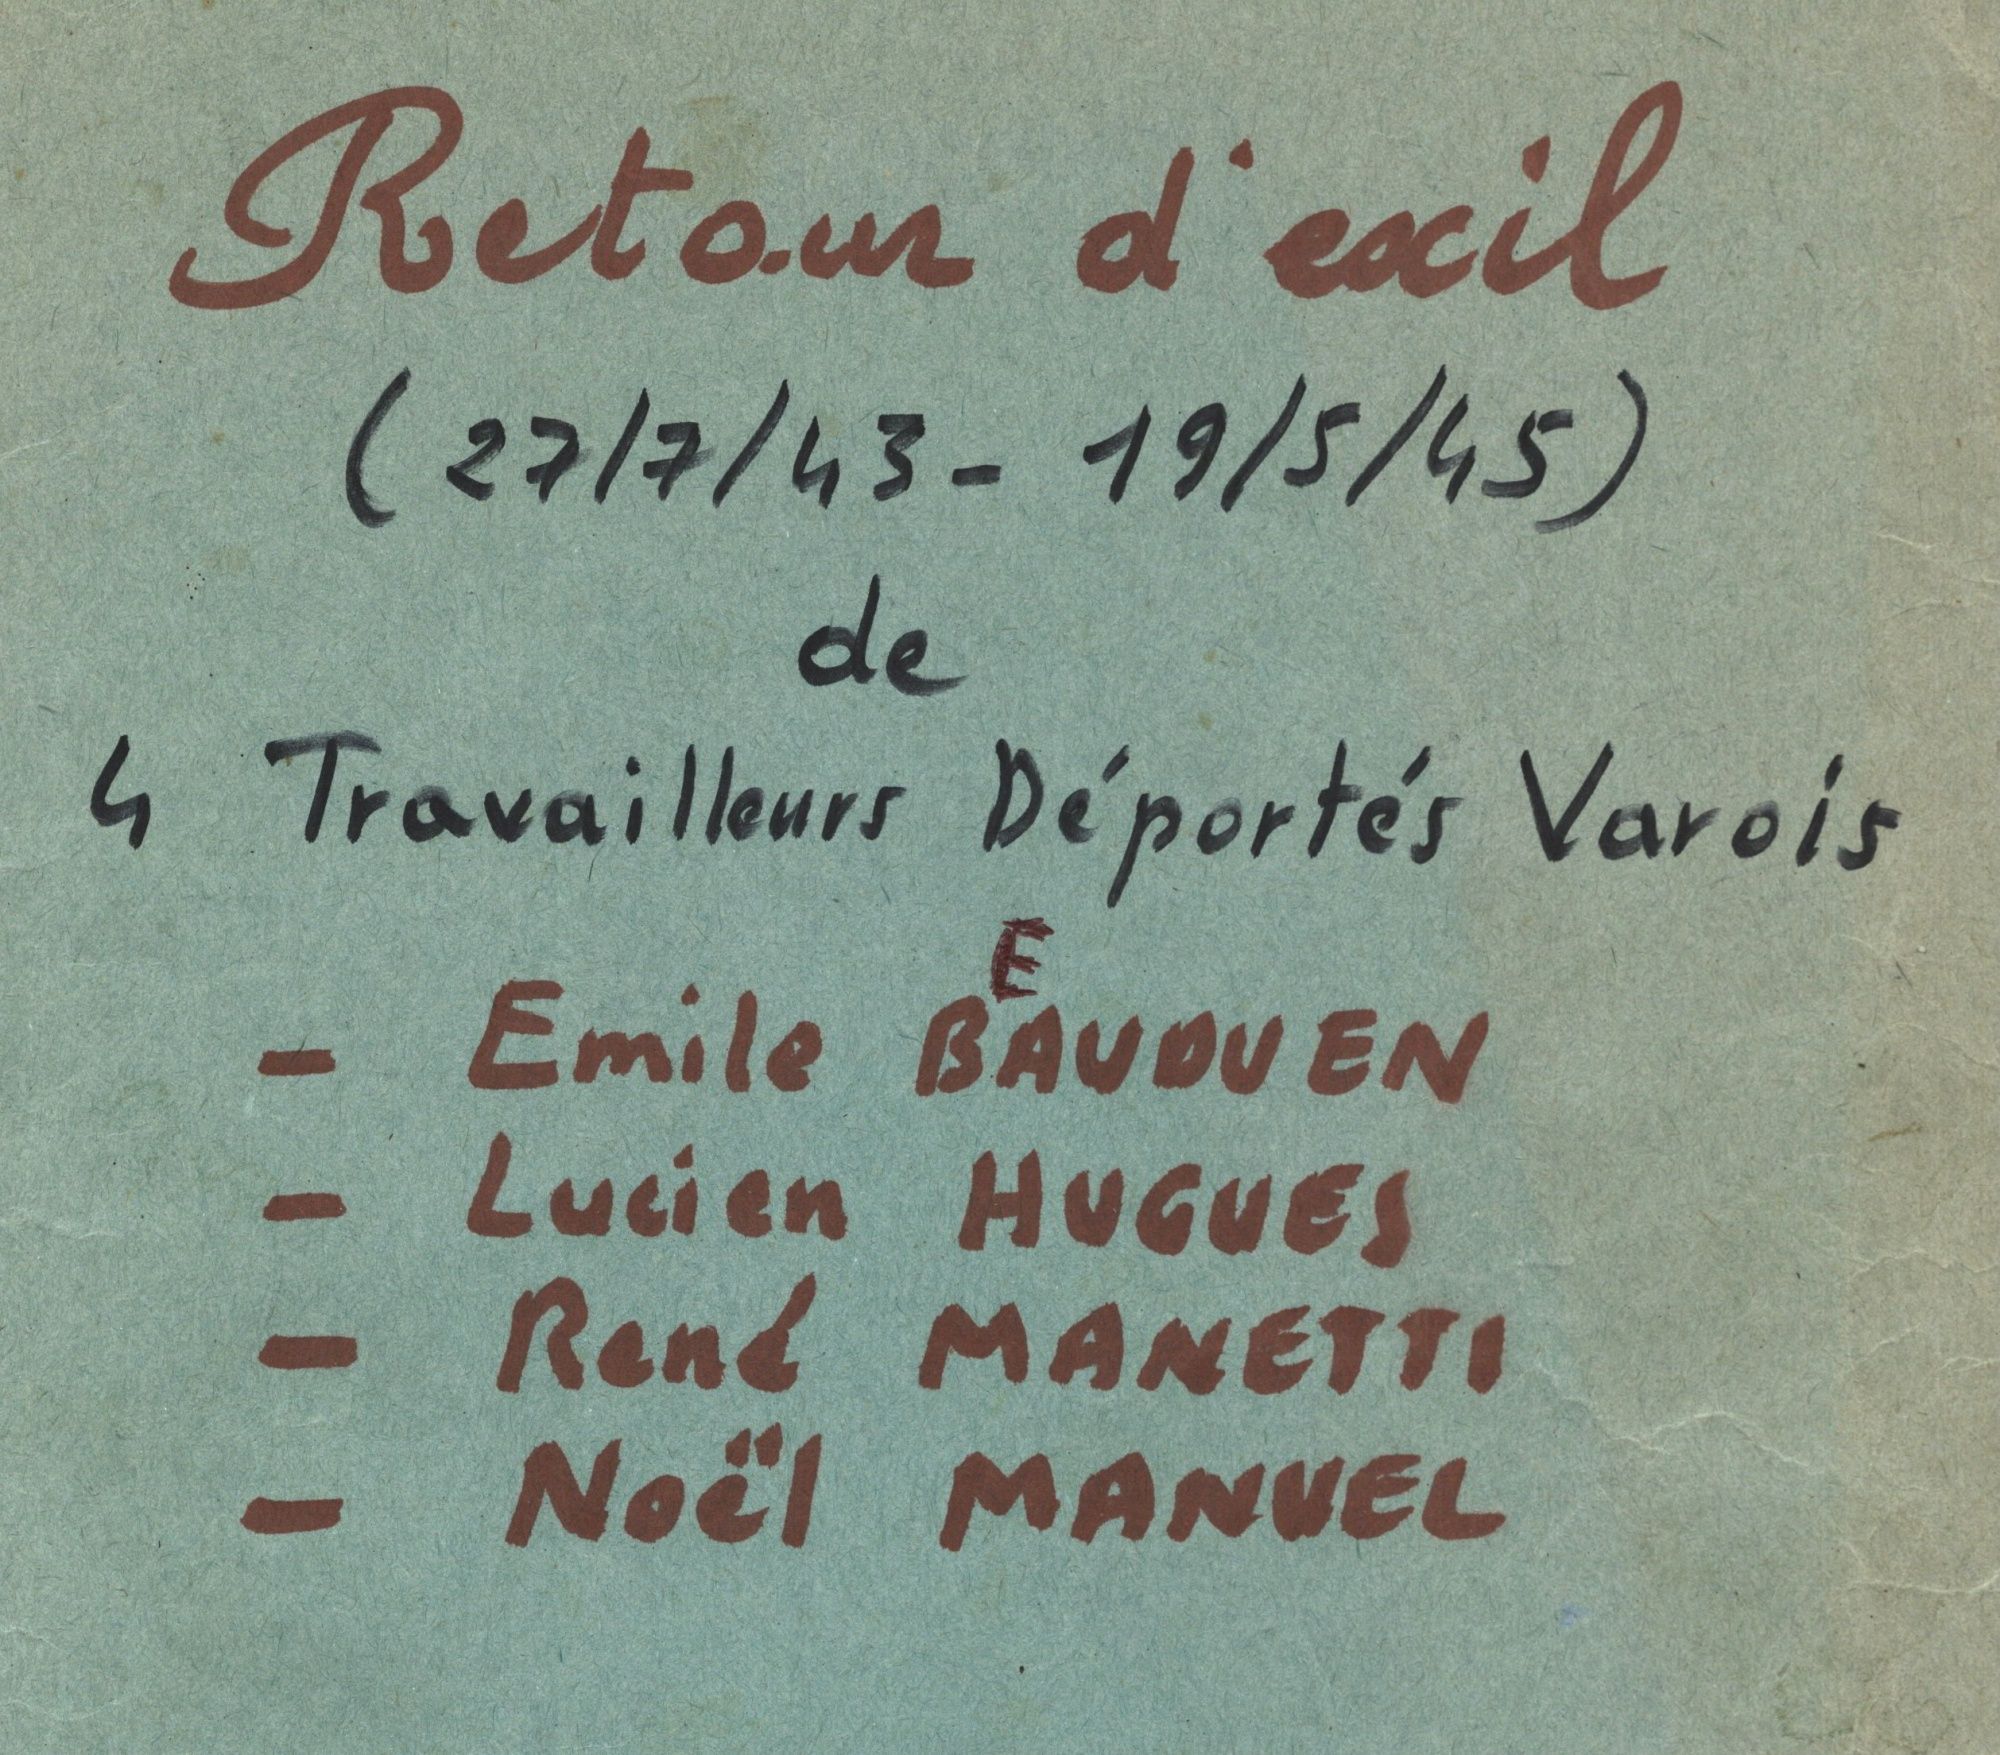 Retour d'exil
(27/7/43 - 19/5/45)
de
4 Travailleurs Déportés Varois
E
- Emile BAUDUEN
- Lucien HUGUES
- René MANETTI
- Noël MANUEL